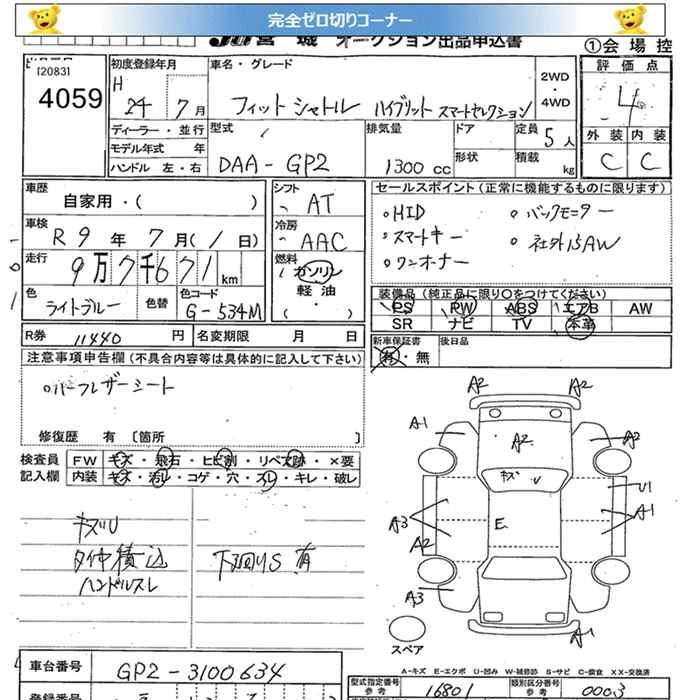 完全ゼロ切りコーナー
JU宮城 オークション出品申込書
①会場控
[2083]
4059
初度登録年月
H 24 7月
車名・グレード
フィットシャトル ハイブリット スマートセレクション
2WD・4WD
評価点
4
外装 内装
C C
ディーラー・並行
モデル年式 年
ハンドル 左・右
型式
DAA-GP2
排気量
1300cc
ドア
形状
定員 5人
積載 kg
車歴
自家用・( )
車検
R9年7月(1日)
走行
9万7千671km
色
ライトブルー
色替
色コード
G-534M
シフト
AT
冷房
AAC
燃料
ガソリン
軽油
( )
セールスポイント(正常に機能するものに限ります)
。HID 。バックモニター
。スマートキー 。社外15AW
。ワンオーナー
装備品(純正品に限り○をつけてください)
PS PW ABS エアB AW
SR ナビ TV 本革
R券 11440円
名変期限 月 日
新車保証書
有・無
後日品
注意事項申告欄(不具合内容等は具体的に記入して下さい)
。ハーフレザーシート
修復歴 有 [箇所 ]
検査員記入欄
FW キズ・飛石・ヒビ割・リペア跡・×要
内装 キズ・汚レ・コゲ・穴・スレ・キレ・破レ
キズU
タイヤ積込 下廻りS有
ハンドルスレ
A2 A2
A1 A2 A2
キズ U
U1
A3 E A1
A2
A3
A1
スペア
A-キズ E-エクボ U-凹み W-補修跡 S-サビ C-腐食 XX-交換済
車台番号
GP2-3100634
型式指定番号 参考
16801
類別区分番号 参考
0003
登録番号